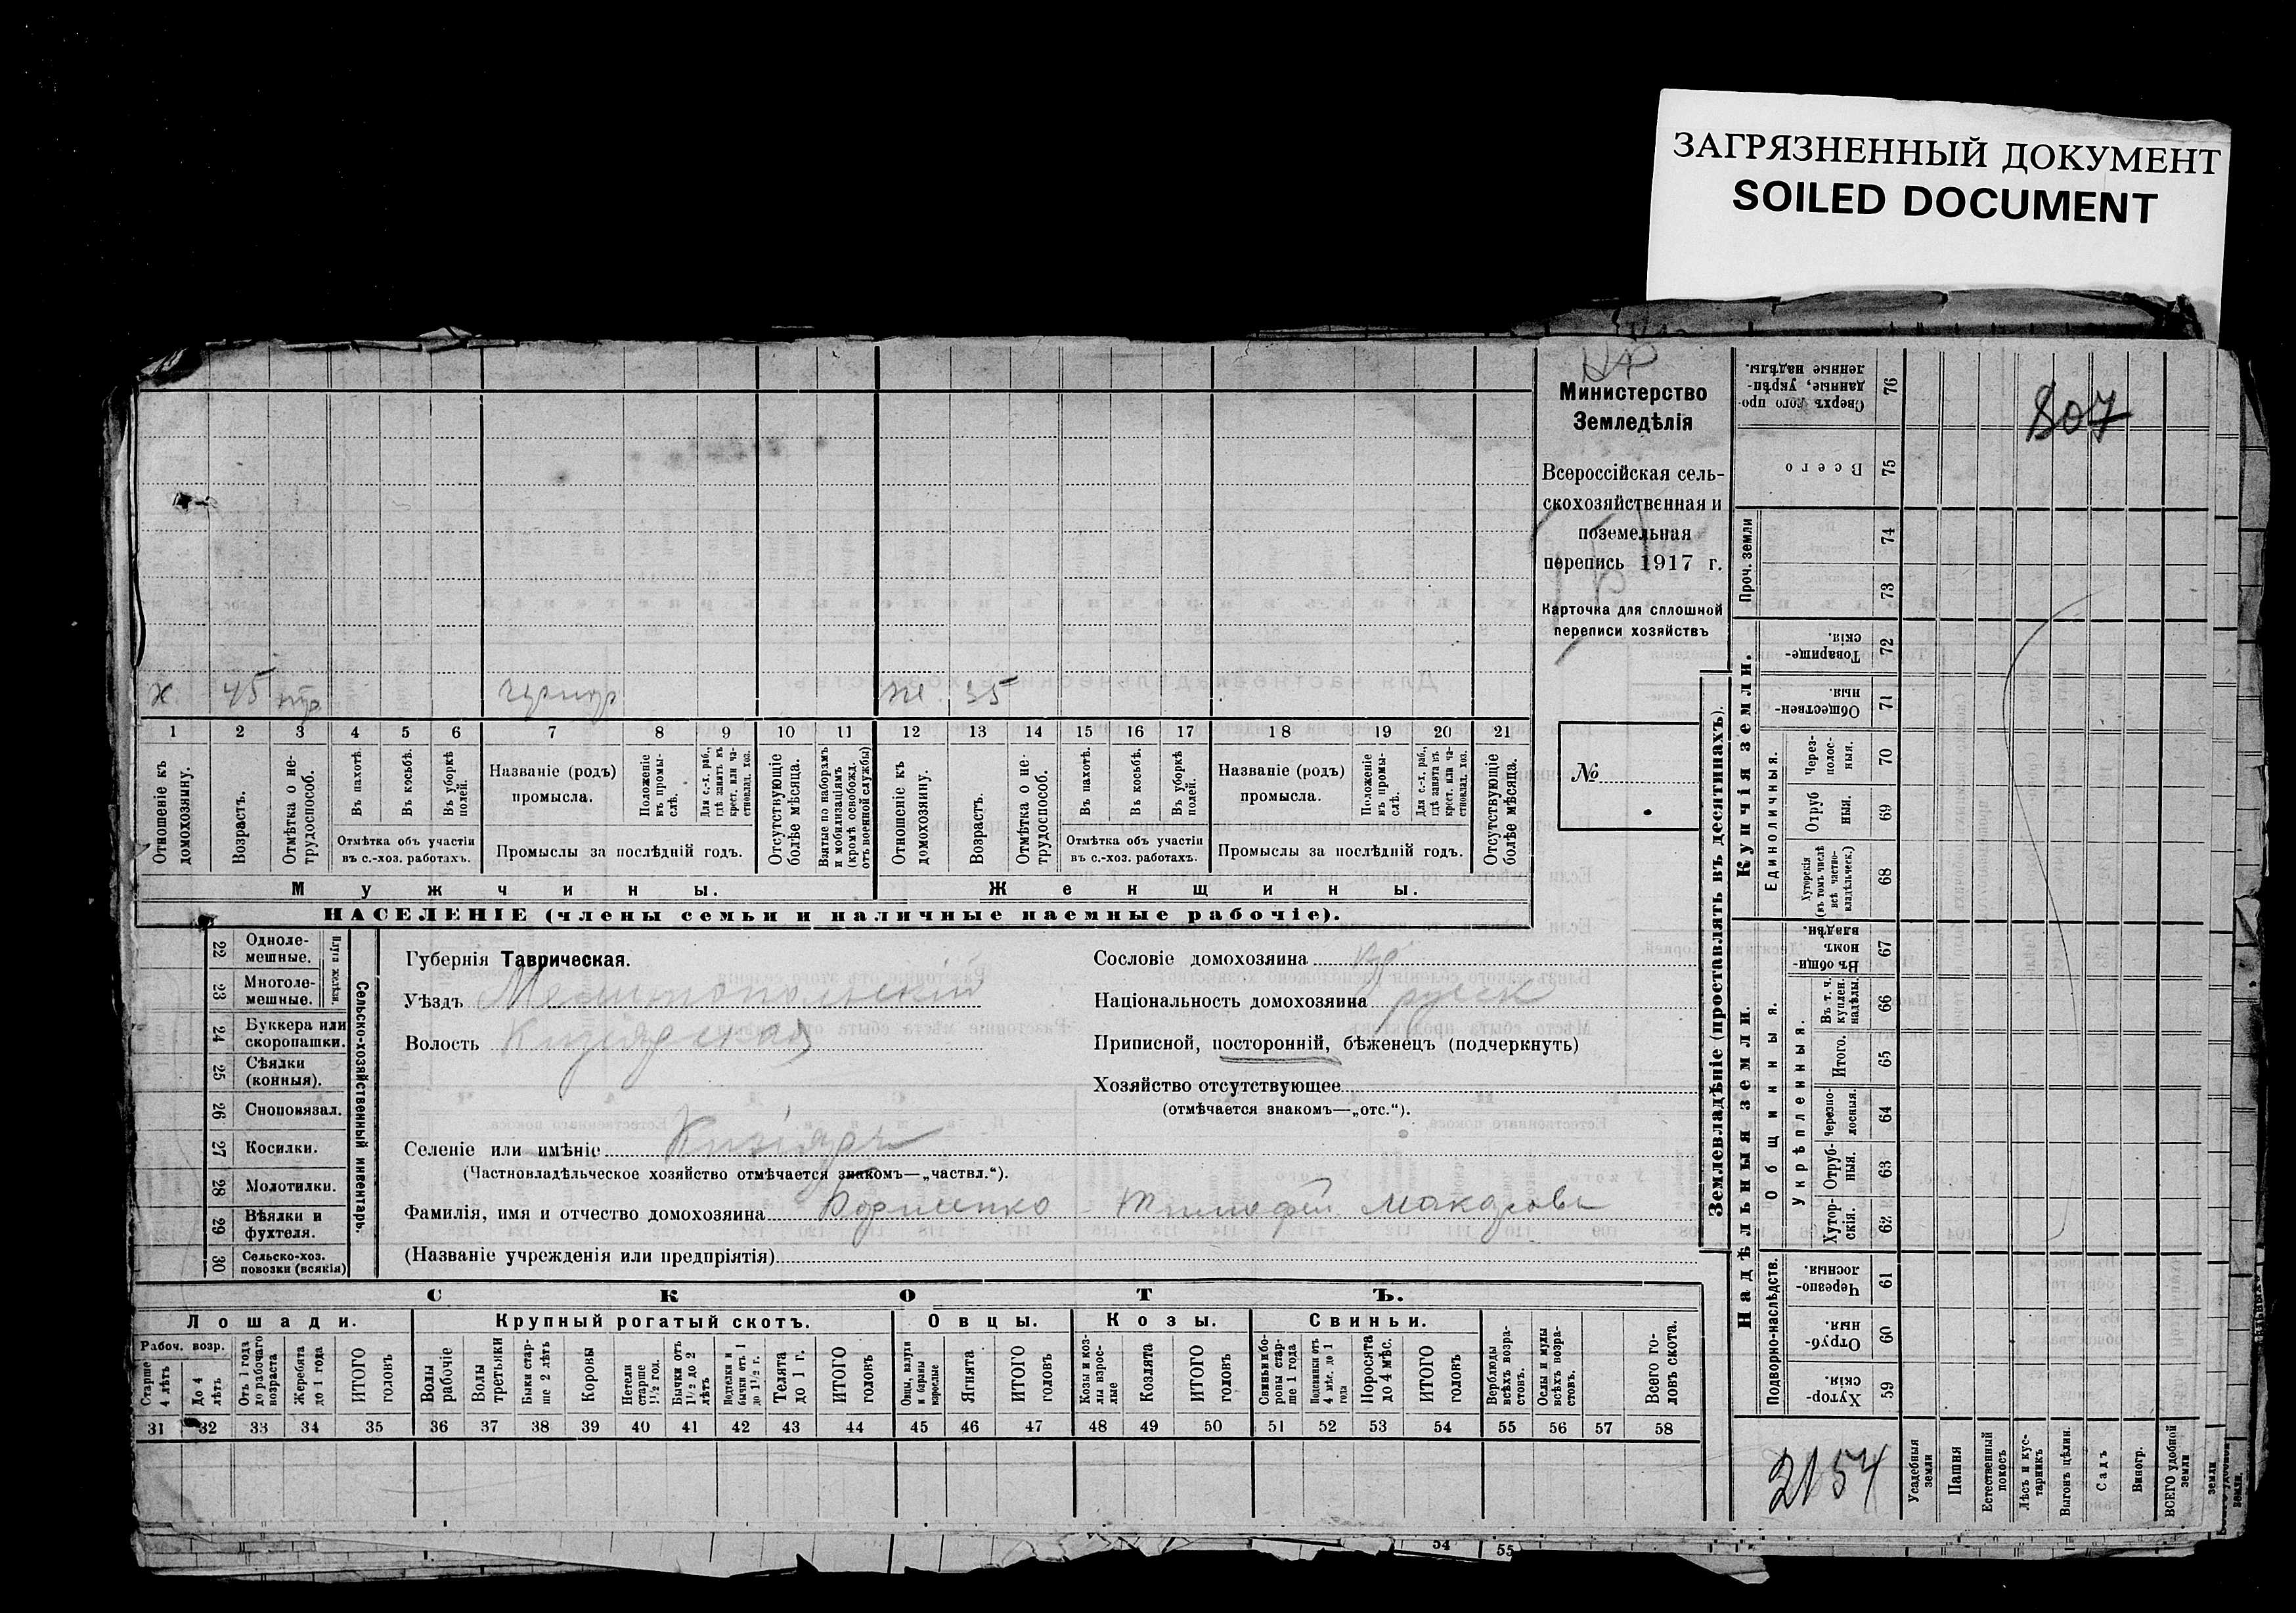 ЗАГРЯЗНЕННЫЙ ДОКУМЕНТ
SOILED DOCUMENT
807
Министерство
Земледѣлія
Всероссійская сель-
скохозяйственная и
поземельная
перепись 1917 г.
Карточка для сплошной
переписи хозяйствъ
№
х. 45 нтр. ж. 35
1 2 3 4 5 6 7 8 9 10 11 12 13 14 15 16 17 18 19 20 21
Отношеніе къ домохозяину.
Возрастъ.
Отмѣтка о не-трудоспособ.
Въ пахотѣ.
Въ косьбѣ.
Въ уборкѣ полей.
Отмѣтка объ участіи
въ с.-хоз. работахъ.
Названіе (родъ)
промысла.
Положеніе въ промы-слѣ.
Для с.-х. раб., гдѣ занятъ въ крест. или ча-стновлад. хоз.
Промыслы за послѣдній годъ.
Отсутствующіе болѣе мѣсяца.
Взятые по наборамъ и мобилизаціямъ (кромѣ освобожд. отъ военной службы)
Отношеніе къ домохозяину.
Возрастъ.
Отмѣтка о не-трудоспособ.
Въ пахотѣ.
Въ косьбѣ.
Въ уборкѣ полей.
Отмѣтка объ участіи
въ с.-хоз. работахъ.
Названіе (родъ)
промысла.
Положеніе въ промы-слѣ.
Для с.-х. раб., гдѣ занята въ крест. или ча-стновлад. хоз.
Промыслы за послѣдній годъ.
Отсутствующіе болѣе мѣсяца.
Мужчины.
Женщины.
НАСЕЛЕНІЕ (члены семьи и наличные наемные рабочіе).
22 Одноле-мешные.
23 Многоле-мешные.
Плуги желѣзн.
24 Буккера или скоропашки.
25 Сѣялки (конныя).
26 Сноповязал.
27 Косилки.
28 Молотилки.
29 Вѣялки и фухтеля.
30 Сельско-хоз. повозки (всякія)
Сельско-хозяйственный инвентарь.
Губернія Таврическая.
Уѣздъ Мелитопольскій
Волость Кизіярская
Селеніе или имѣніе Кизіяръ
(Частновладѣльческое хозяйство отмѣчается знакомъ—„частвл.“).
Фамилія, имя и отчество домохозяина Борисенко Тимофей Макаровъ
(Названіе учрежденія или предпріятія)
Сословіе домохозяина кр
Національность домохозяина русск
Приписной, посторонній, бѣженецъ (подчеркнуть)
Хозяйство отсутствующее
(отмѣчается знакомъ—„отс.“).
СКОТЪ.
Лошади.
Крупный рогатый скотъ.
Овцы.
Козы.
Свиньи.
Рабоч. возр.
Старше 4 лѣтъ
До 4 лѣтъ
Отъ 1 года до рабочаго возраста
Жеребята до 1 года
ИТОГО головъ
Волы рабочіе
Волы третьяки
Быки стар-ше 2 лѣтъ
Коровы
Нетели старше 1½ год.
Бычки отъ 1½ до 2 лѣтъ
Подтелки и бычки отъ 1 до 1½ г.
Телята до 1 г.
ИТОГО головъ
Овцы, валухи и бараны взрослые
Ягнята
ИТОГО головъ
Козы и коз-лы взрос-лые
Козлята
ИТОГО головъ
Свиньи и бо-ровы стар-ше 1 года
Подсвинки отъ 4 мѣс. до 1 года
Поросята до 4 мѣс.
ИТОГО головъ
Верблюды всѣхъ возра-стовъ.
Ослы и мулы всѣхъ возра-стовъ.
Всего го-ловъ скота.
31 32 33 34 35 36 37 38 39 40 41 42 43 44 45 46 47 48 49 50 51 52 53 54 55 56 57 58
Землевладѣніе (проставлять въ десятинахъ).
Надѣльныя земли.
Купчія земли.
Проч. земли
Подворно-наслѣдств.
Общинныя.
Укрѣпленныя.
Единоличныя.
Сверхъ того про-данные, укрѣп-ленные надѣлы. 76
Всего 75
74
73
Товарище-скія. 72
Обществен-ныя 71
Через-полос-ныя. 70
Отруб-ныя. 69
Хуторскія (въ томъ числѣ всѣ частно-владѣльческ.) 68
Въ общи-номъ владѣн. 67
Въ т. ч. куплен. надѣлы. 66
Итого. 65
Черезпо-лосныя. 64
Отруб-ныя. 63
Хутор-скія. 62
Черезпо-лосныя 61
Отруб-ныя 60
Хутор-скія. 59
2154
Усадебныя земли
Пашня
Естественный покосъ
Лѣсъ и кус-тарникъ
Выгонъ цѣлин.
Садъ
Виногр.
ВСЕГО удобной земли
54 55